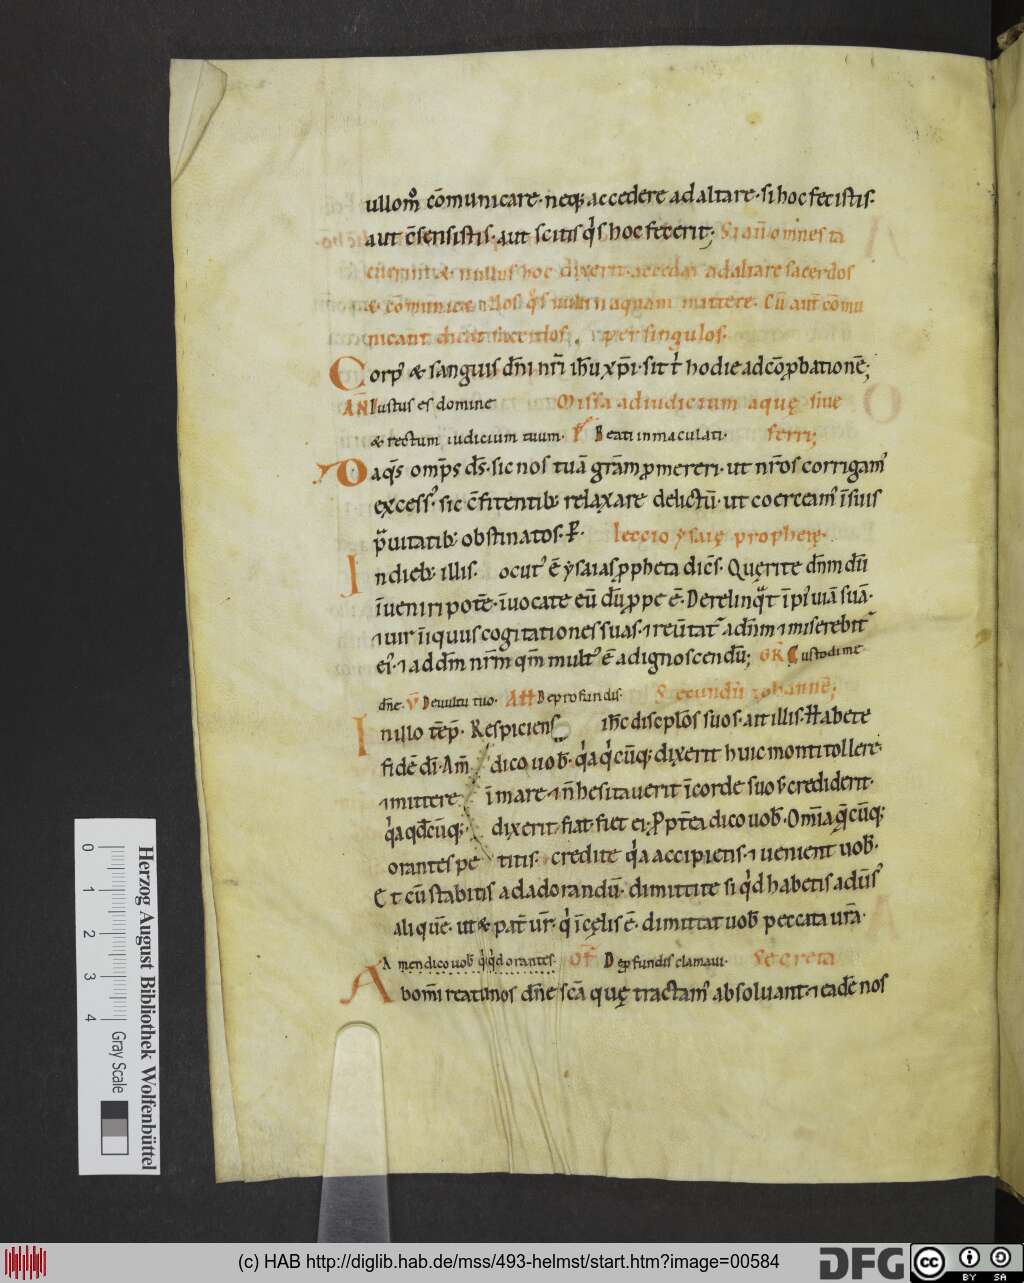 ullom̅ cōmunicare· neq; accedere ad altare· si hoc fecistis·
aut c̄sensistis· aut scitis q̇s hoc fecerit; Si aut̄ omnes ta
cuerint & nullus hoc dixerit· accedat ad altare sacerdos
& cōmunicæ illos q̇s uult in aquam mittere· Cū aut̄ cōmu
nicant dicat sacerdos per singulos·
Corp⁹ & sanguis dn̄i nr̄i ih̄u xp̄i· sit t̄ hodie ad cōp̱bationē;
AN̄ Iustus es domine Missa ad iudicium aquę siue
& rectum iudicium tuum· Ps̄ Beati inmaculati· ferri;
P aq̄s omp̄s ds̄· sic nos tuā grām p̱mereri· ut nr̄os corrigam⁹
excess⁹· sic c̄fitentib; relaxare delictū· ut coerceam⁹ ī suis
p̱uitatib; obstinatos· P̱· leccio ysaię prophetę·
In dieb; illis· ocut⁹ ē ysaias p̱pheta dicēs· Querite dn̄m dū
īueniri potē· īuocate eū dū p̱pe ē· Derelinq̄t īpi⁹ uiā suā·
⁊ uir īiquus cogitationes suas· ⁊ reūtat᷑ ad dn̄m ⁊ miserebit᷑
ei⁹· ⁊ ad dm̄ nr̄m qm̄ mult⁹ ē ad ignoscendū; GR̄ Custodi me
dn̄e· V̄ De uultu tuo· All De profundis· Secundū iohannē;
In illo tēp̱· Respiciens ih̄c discipłos suos· ait illis· Habete
fidē dī· Am̄ dico uob̄· q̇a q̇cūq; dixerit huic monti tollere·
⁊ mittere ī mare· ⁊ n̄ hesitauerit ī corde suo s; crediderit·
q̇a qd̄cūq; dixerit fiat· fiet ei; P̱pt̄ea dico uob̄· Om̄ia q̄cūq;
orantes pe titis· credite q̇a accipietis· ⁊ uenient uob̄·
Et cū stabitis ad adorandū· dimittite si q̇d habetis adūs⁹
aliquē· ut & pat̄ ur̄· q̇ ī cęlis ē· dimittat uob̄ peccata ur̄a·
Amen dico uob̄ q̇q̇d orantes· OF̄ De p̱fundis clamaui· Secreta
Ab om̄i reatu nos dn̄e scā quę tractam⁹ absoluant· ⁊ eadē nos
0
1
2
3
4
Gray Scale
Herzog August Bibliothek Wolfenbüttel
(c) HAB http://diglib.hab.de/mss/493-helmst/start.htm?image=00584
DFG
cc
BY SA